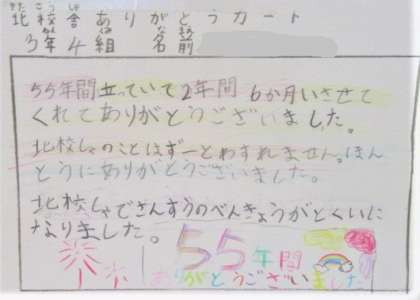 きた こう しゃ
北校舎ありがとうカード
ねん くみ な まえ
3年4組 名前
55年間立っていて2年間 6か月いさせて
くれてありがとうございました。
北校しゃのことはずーとわすれません。ほん
とうにありがとうございました。
北校しゃでさんすうのべんきょうがとくいに
なりました。
55年間
ありがとうございました